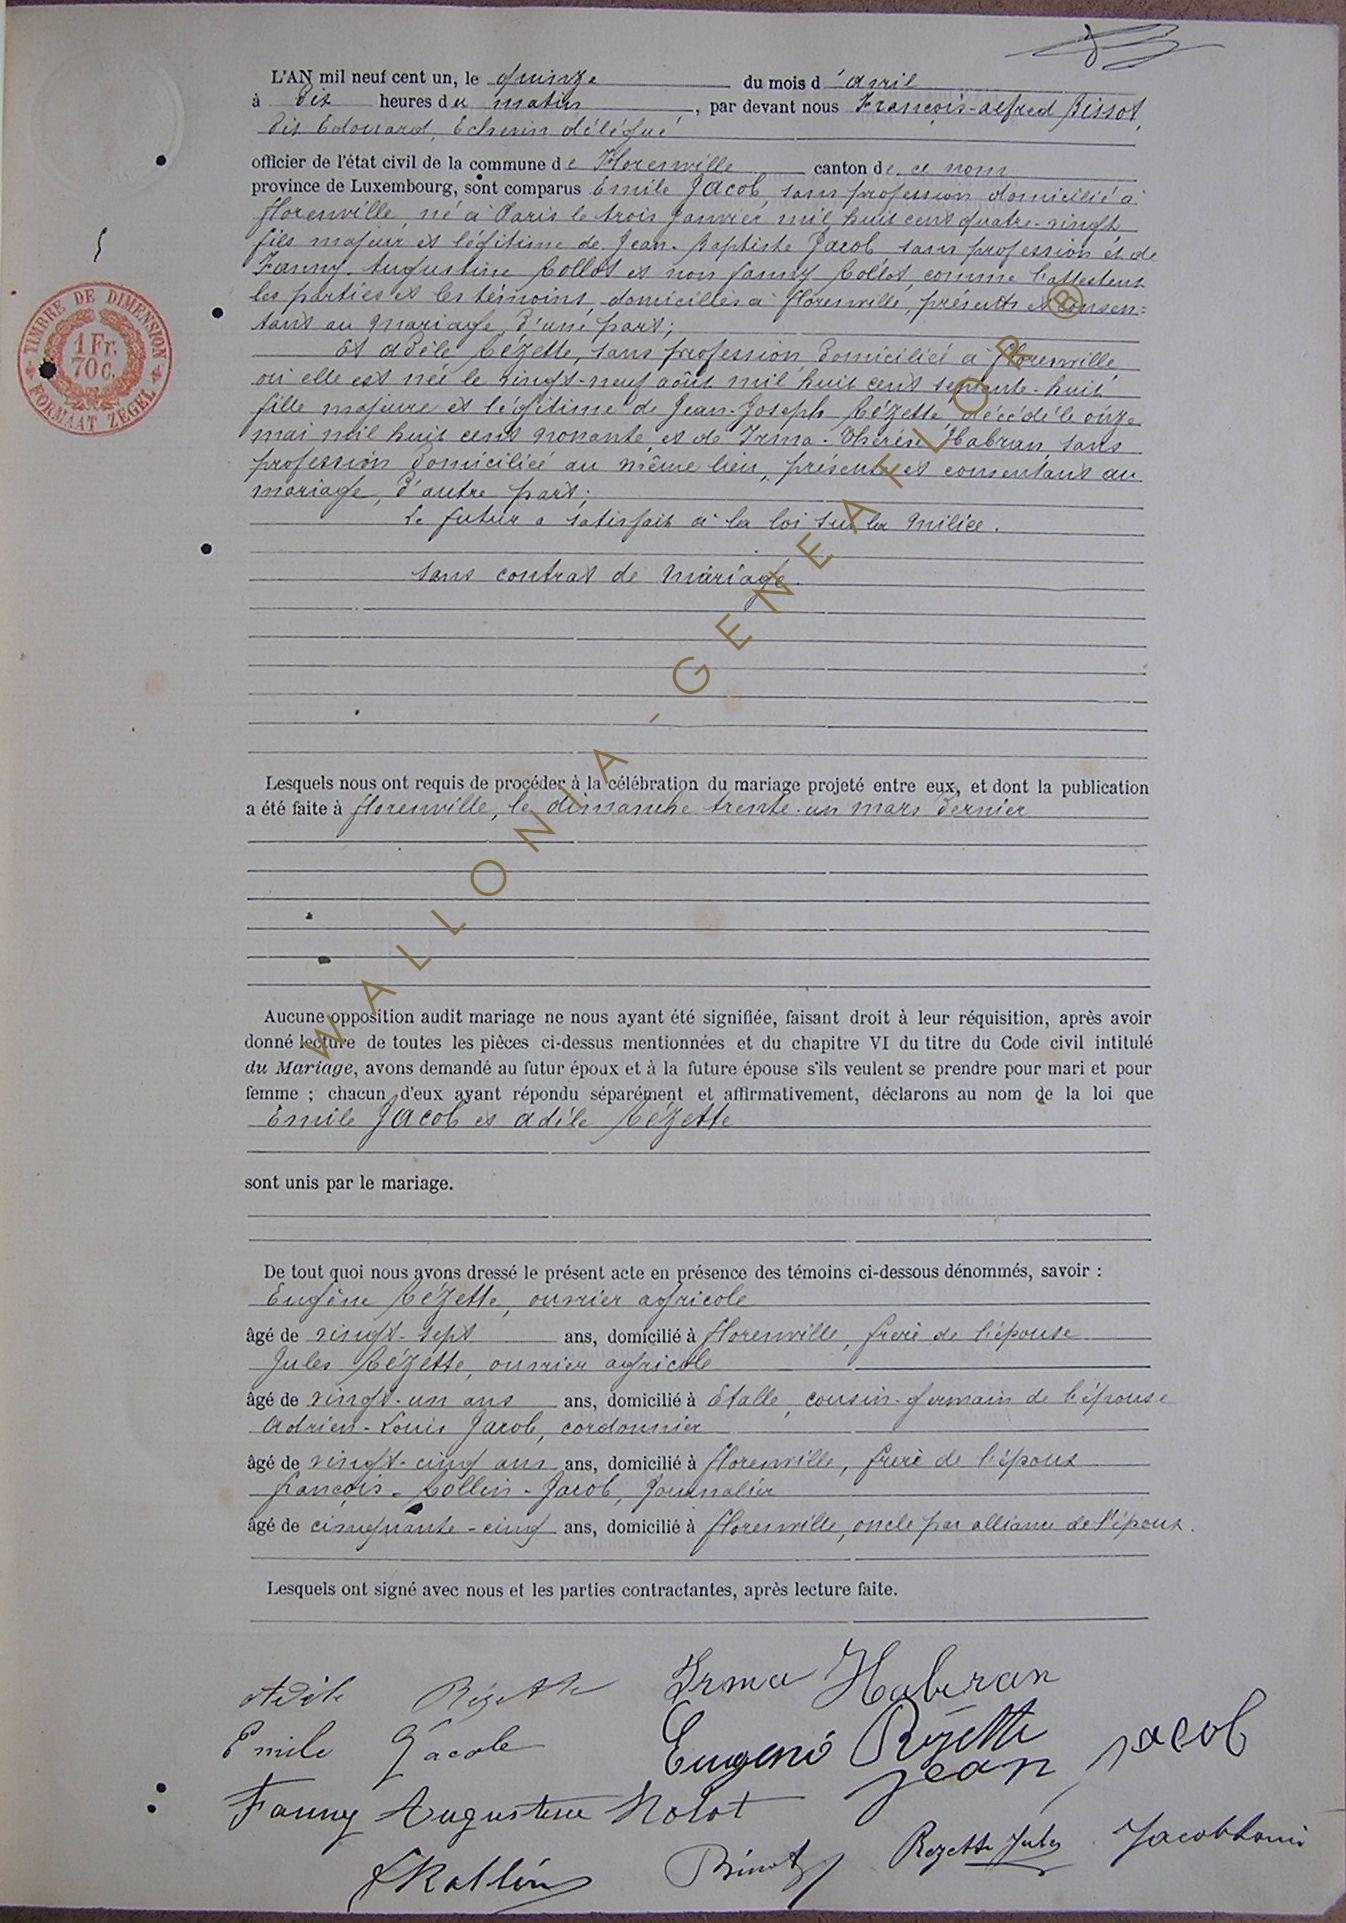 L'AN mil neuf cent un, le quinze du mois d'avril
à dix heures du matin, par devant nous François-Alfred
dit Edouard, Echevin délégué
officier de l'état civil de la commune de Florenville canton de ce nom
province de Luxembourg, sont comparus Emile Jacob, sans profession domicilié à
florenville, né à Paris le trois Janvier mil huit cent quatre-vingt
fils majeur et légitime de Jean-Baptiste Jacob sans profession et de
Fanny-Augustine et non fanny, comme l'attestent
les parties et les témoins, domiciliés à florenville, présents et consen=
tant au mariage, d'une part;
Et Adèle Rézette, sans profession domiciliée à florenville
où elle est née le vingt-neuf août mil huit cent septante-huit
fille majeure et légitime de Jean-Joseph Rézette, décédé le onze
mai mil huit cent nonante et de Irma-Thérèse Habran, sans
profession domiciliée au même lieu, présente et consentant au
mariage, d'autre part;
Le futur a satisfait à la loi sur la milice.
Sans contrat de mariage.
Lesquels nous ont requis de procéder à la célébration du mariage projeté entre eux, et dont la publication
a été faite à florenville, le dimanche trente-un mars dernier
Aucune opposition audit mariage ne nous ayant été signifiée, faisant droit à leur réquisition, après avoir
donné lecture de toutes les pièces ci-dessus mentionnées et du chapitre VI du titre du Code civil intitulé
du Mariage, avons demandé au futur époux et à la future épouse s'ils veulent se prendre pour mari et pour
femme ; chacun d'eux ayant répondu séparément et affirmativement, déclarons au nom de la loi que
Emile Jacob et Adèle Rézette
sont unis par le mariage.
De tout quoi nous avons dressé le présent acte en présence des témoins ci-dessous dénommés, savoir :
Eugène Rézette, ouvrier agricole
âgé de vingt-sept ans, domicilié à florenville, frère de l'épouse
Jules Rézette, ouvrier agricole
âgé de vingt-un ans ans, domicilié à Etalle, cousin-germain de l'épouse
Adrien-Louis Jacob, cordonnier
âgé de vingt-cinq ans ans, domicilié à florenville, frère de l'époux
françois-Jacob, Journalier
âgé de cinquante-cinq ans, domicilié à florenville, oncle par alliance de l'époux.
Lesquels ont signé avec nous et les parties contractantes, après lecture faite.
Adèle Rézette Irma Habran
Emile Jacob Eugène Rézette Jean Jacob
Fanny Augustine
Rezette Jules Jacob Louis
TIMBRE DE DIMENSION
1 Fr.
70 C.
FORMAAT ZEGEL
WALLONIA - GENEAFLOR ®